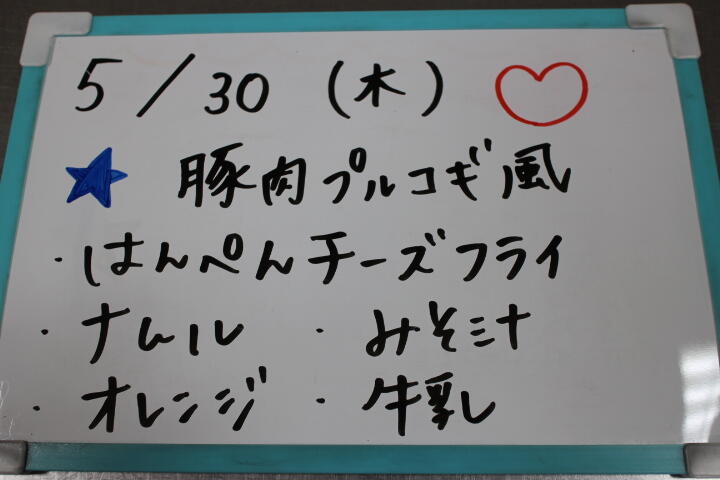 5/30 (木)
豚肉プルコギ風
・はんぺんチーズフライ
・ナムル ・みそ汁
・オレンジ ・牛乳